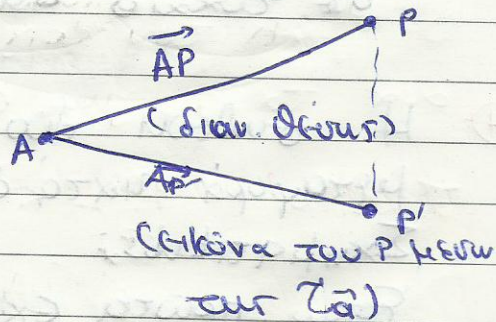 P
AP
(διαν. θέσης)
A
AP'
P'
(εικόνα του P μέσω
της τ_α)